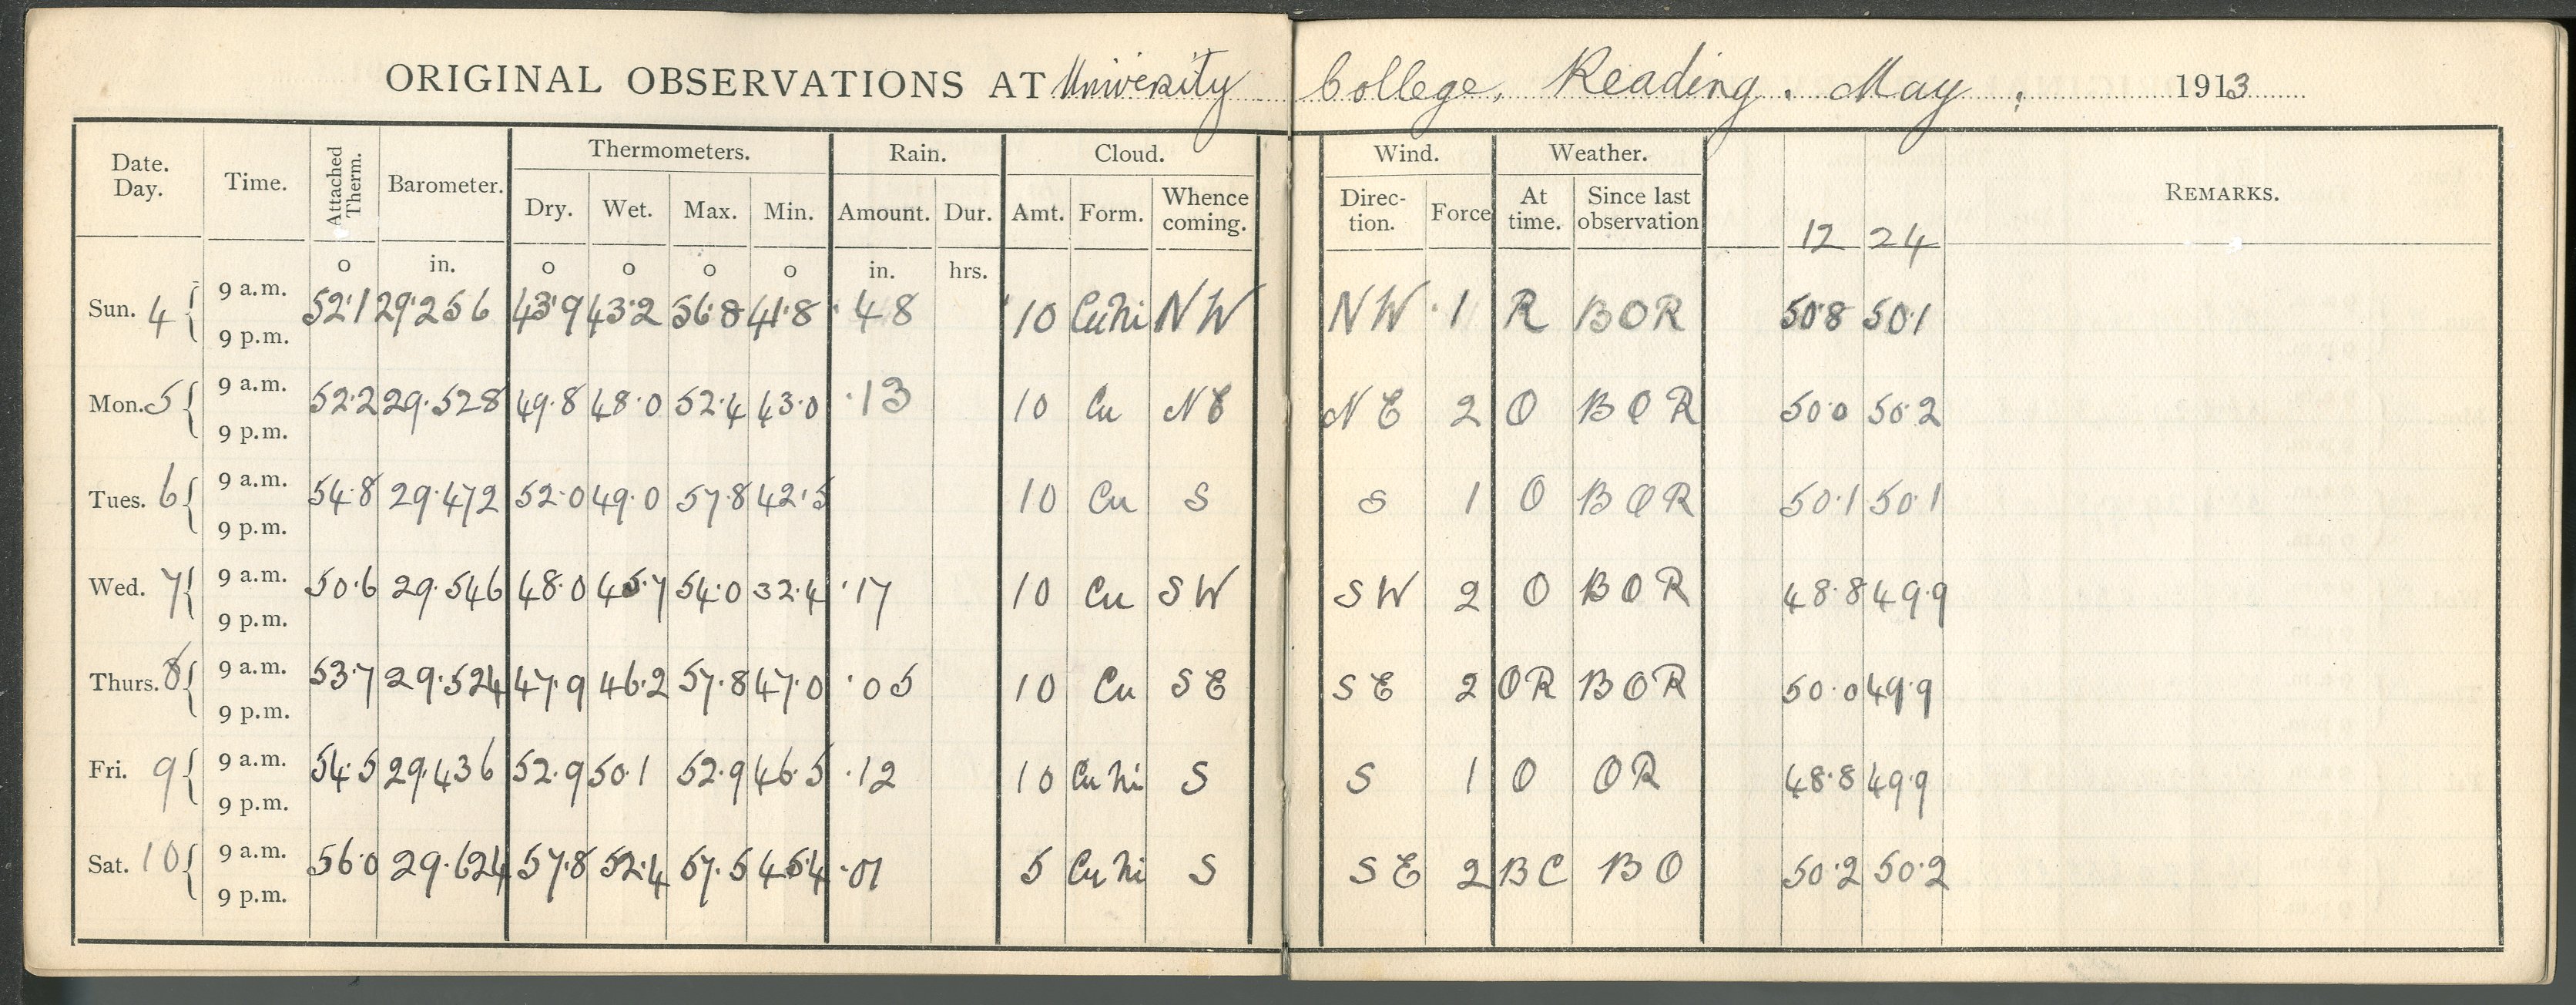 ORIGINAL OBSERVATIONS AT University College, Reading. May. 1913
Date. Day. Time. Attached Therm. Barometer. Thermometers. Rain. Cloud. Wind. Weather. REMARKS.
Dry. Wet. Max. Min. Amount. Dur. Amt. Form. Whence coming. Direc-tion. Force At time. Since last observation 12 24
o in. o o o o in. hrs.
Sun. 4 { 9 a.m. 52.1 29.256 43.9 43.2 56.8 41.8 .48 10 CuNi NW NW 1 R BOR 50.8 50.1
9 p.m.
Mon. 5 { 9 a.m. 52.2 29.528 49.8 48.0 52.4 43.0 .13 10 Cu NE NE 2 O BOR 50.0 50.2
9 p.m.
Tues. 6 { 9 a.m. 54.8 29.472 52.0 49.0 57.8 42.5 10 Cu S S 1 O BOR 50.1 50.1
9 p.m.
Wed. 7 { 9 a.m. 50.6 29.546 48.0 45.7 54.0 32.4 .17 10 Cu SW SW 2 O BOR 48.8 49.9
9 p.m.
Thurs. 8 { 9 a.m. 53.7 29.524 47.9 46.2 57.8 47.0 .05 10 Cu SE SE 2 OR BOR 50.0 49.9
9 p.m.
Fri. 9 { 9 a.m. 54.5 29.436 52.9 50.1 52.9 46.5 .12 10 CuNi S S 1 O OR 48.8 49.9
9 p.m.
Sat. 10 { 9 a.m. 56.0 29.624 57.8 52.4 57.5 45.4 .01 5 CuNi S SE 2 BC BO 50.2 50.2
9 p.m.